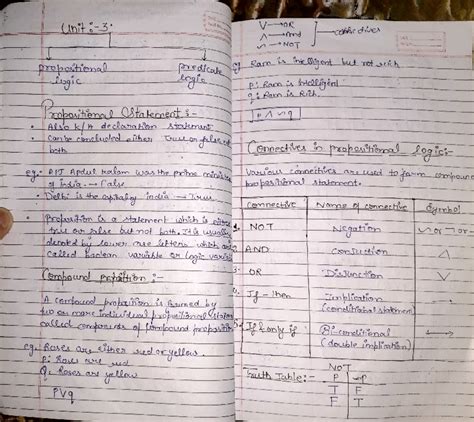 Unit :-3:
propositional
logic
predicate
logic
Propositional Statement :-
• Also k/a declaration statement
• Can be concluded either True or false not
both
eg:- • APJ Abdul Kalam was the prime minister
of India → False
• Delhi is the capital of India → True
• Proposition is a statement which is either
true or false but not both. It is usually
denoted by lower case letters which are
called boolean variable or logic variable
Compound proposition :-
A compound proposition is formed by
two or more individual propositional
called of compound proposition
eg. Roses are either red or yellow.
P: Roses are red
Q: Roses are yellow
PVq
V → OR
Λ → And
∽ → NOT
eg Ram is intelligent but not rich
p: Ram is Intelligent
q: Ram is Rich
p Λ ∽ q
Connectives in propositional logic:-
Various connectives are used to form compound
propositional statement.
Connective Name of connective Symbol
1. NOT Negation ∽ or ¬ or -
2. AND Conjuction Λ
3. OR Disjunction V
4. If - then Implication →
(conditional statement)
5. If & only if Bi-conditional ↔
(double implication)
Truth Table:- NOT
P ∽P
T F
F T